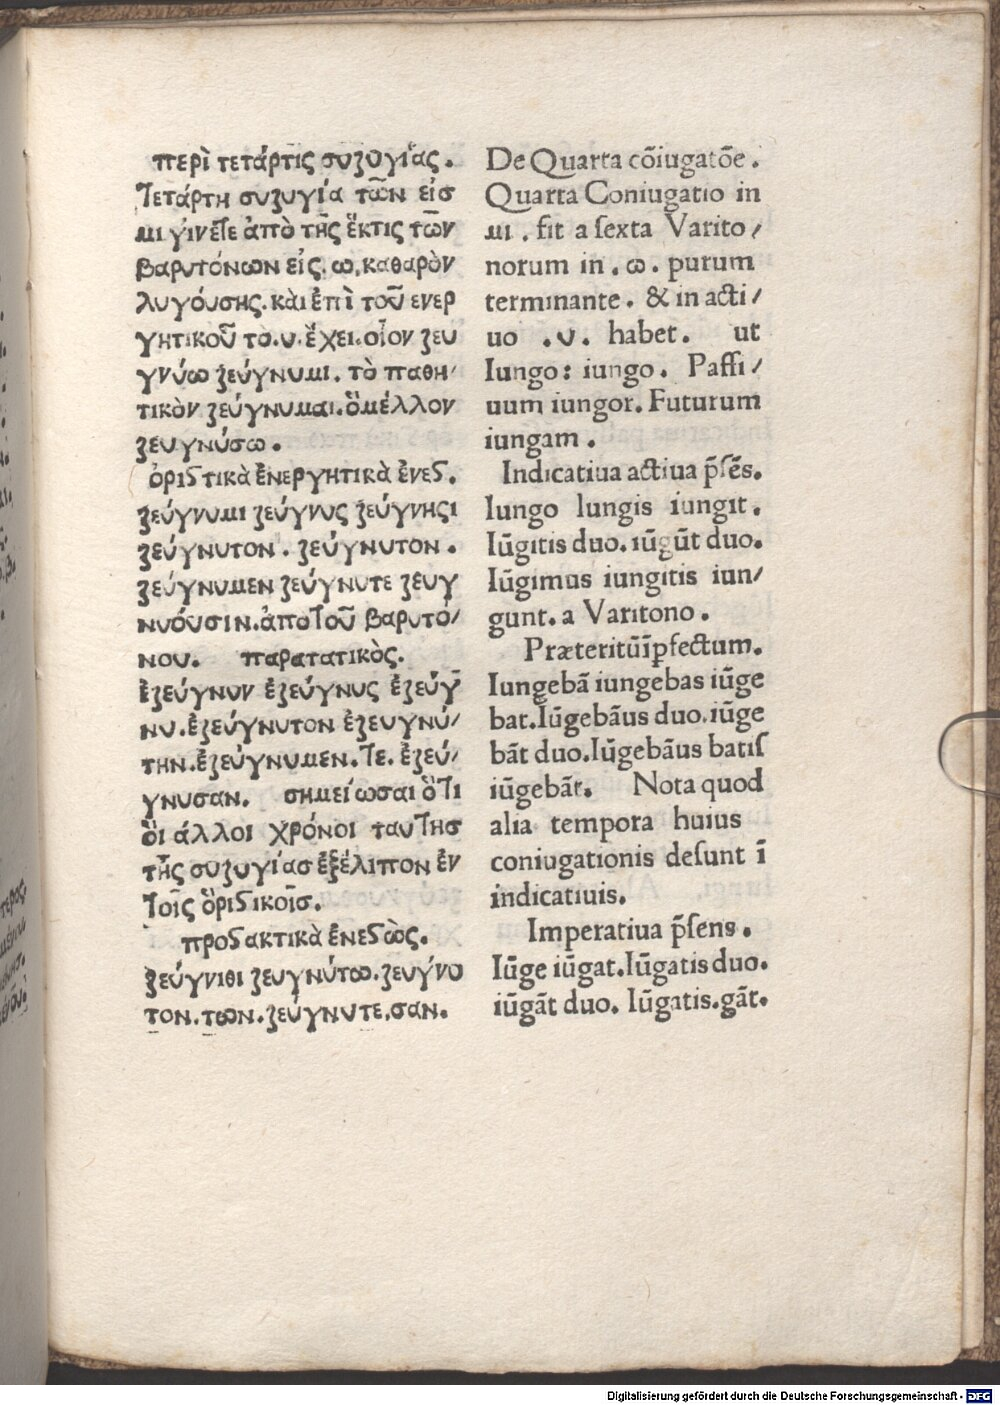 περὶ τετάρτις συζυγίας.
Τετάρτη συζυγία τῶν εἰσ
μι γίνεται ἀπὸ τῆς ἕκτις τῶν
βαρυτόνων εἰς. ω, καθαρὸν
λυγόυσης. κὰι ἐπὶ τοῦ ενερ
γητικοῦ το. υ. ἔχει. οἷον ζευ
γνύω ζεύγνυμι. τὸ παθη/
τικὸν ζεύγνυμαι. ὁμέλλον
ζευγνύσω.
ὁριϛτικὰ ἐνεργητικὰ ἐνεϛ.
ζεύγνυμι ζεύγνυς ζεύγνηςι
ζεύγνυτον. ζεύγνυτον.
ζεύγνυμεν ζεύγνυτε ζευγ
νυόυσιν. ἀποτοῦ βαρυτό/
νου. παρατατικὸς.
ἐζεύγνυν ἐζεύγνυς ἐζεύγ
νυ. ἐζεύγνυτον ἐζευγνύ/
την. ἐζεύγνυμεν. τε. ἐζεύ/
γνυσαν. σημείωσαι ὅτι
ὅι άλλοι χρόνοι ταυτησ
τῆς συζυγίασ ἐξέλιπον ἐν
τοῖς ὅριϛικοῖσ.
προϛακτικὰ ἐνεϛὼς.
ζεύγνιθι ζευγνύτω. ζευγνυ
τον. των. ζεύγνυτε, σαν.
De Quarta cõiugatõe.
Quarta Coniugatio in
μι. fit a ſexta Varito/
norum in. ω. purum
terminante. & in acti/
uo .υ. habet. ut
Iungo: iungo. Paſſi/
uum iungor. Futurum
iungam.
Indicatiua actiua p̃ſẽs.
Iungo Iungis iungit.
Iũgitis duo. iũgũt duo.
Iũgimus iungitis iun/
gunt. a Varitono.
Præteritũĩp̱fectum.
Iungebã iungebas iũge
bat. Iũgebãus duo. iũge
bãt duo. Iũgebãus batiſ
iũgebãt. Nota quod
alia tempora huius
coniugationis deſunt ĩ
indicatiuis.
Imperatiua p̃ſens.
Iũge iũgat. Iũgatis duo.
iũgãt duo. Iũgatis. gãt.
τερος
Digitalisierung gefördert durch die Deutsche Forschungsgemeinschaft - DFG